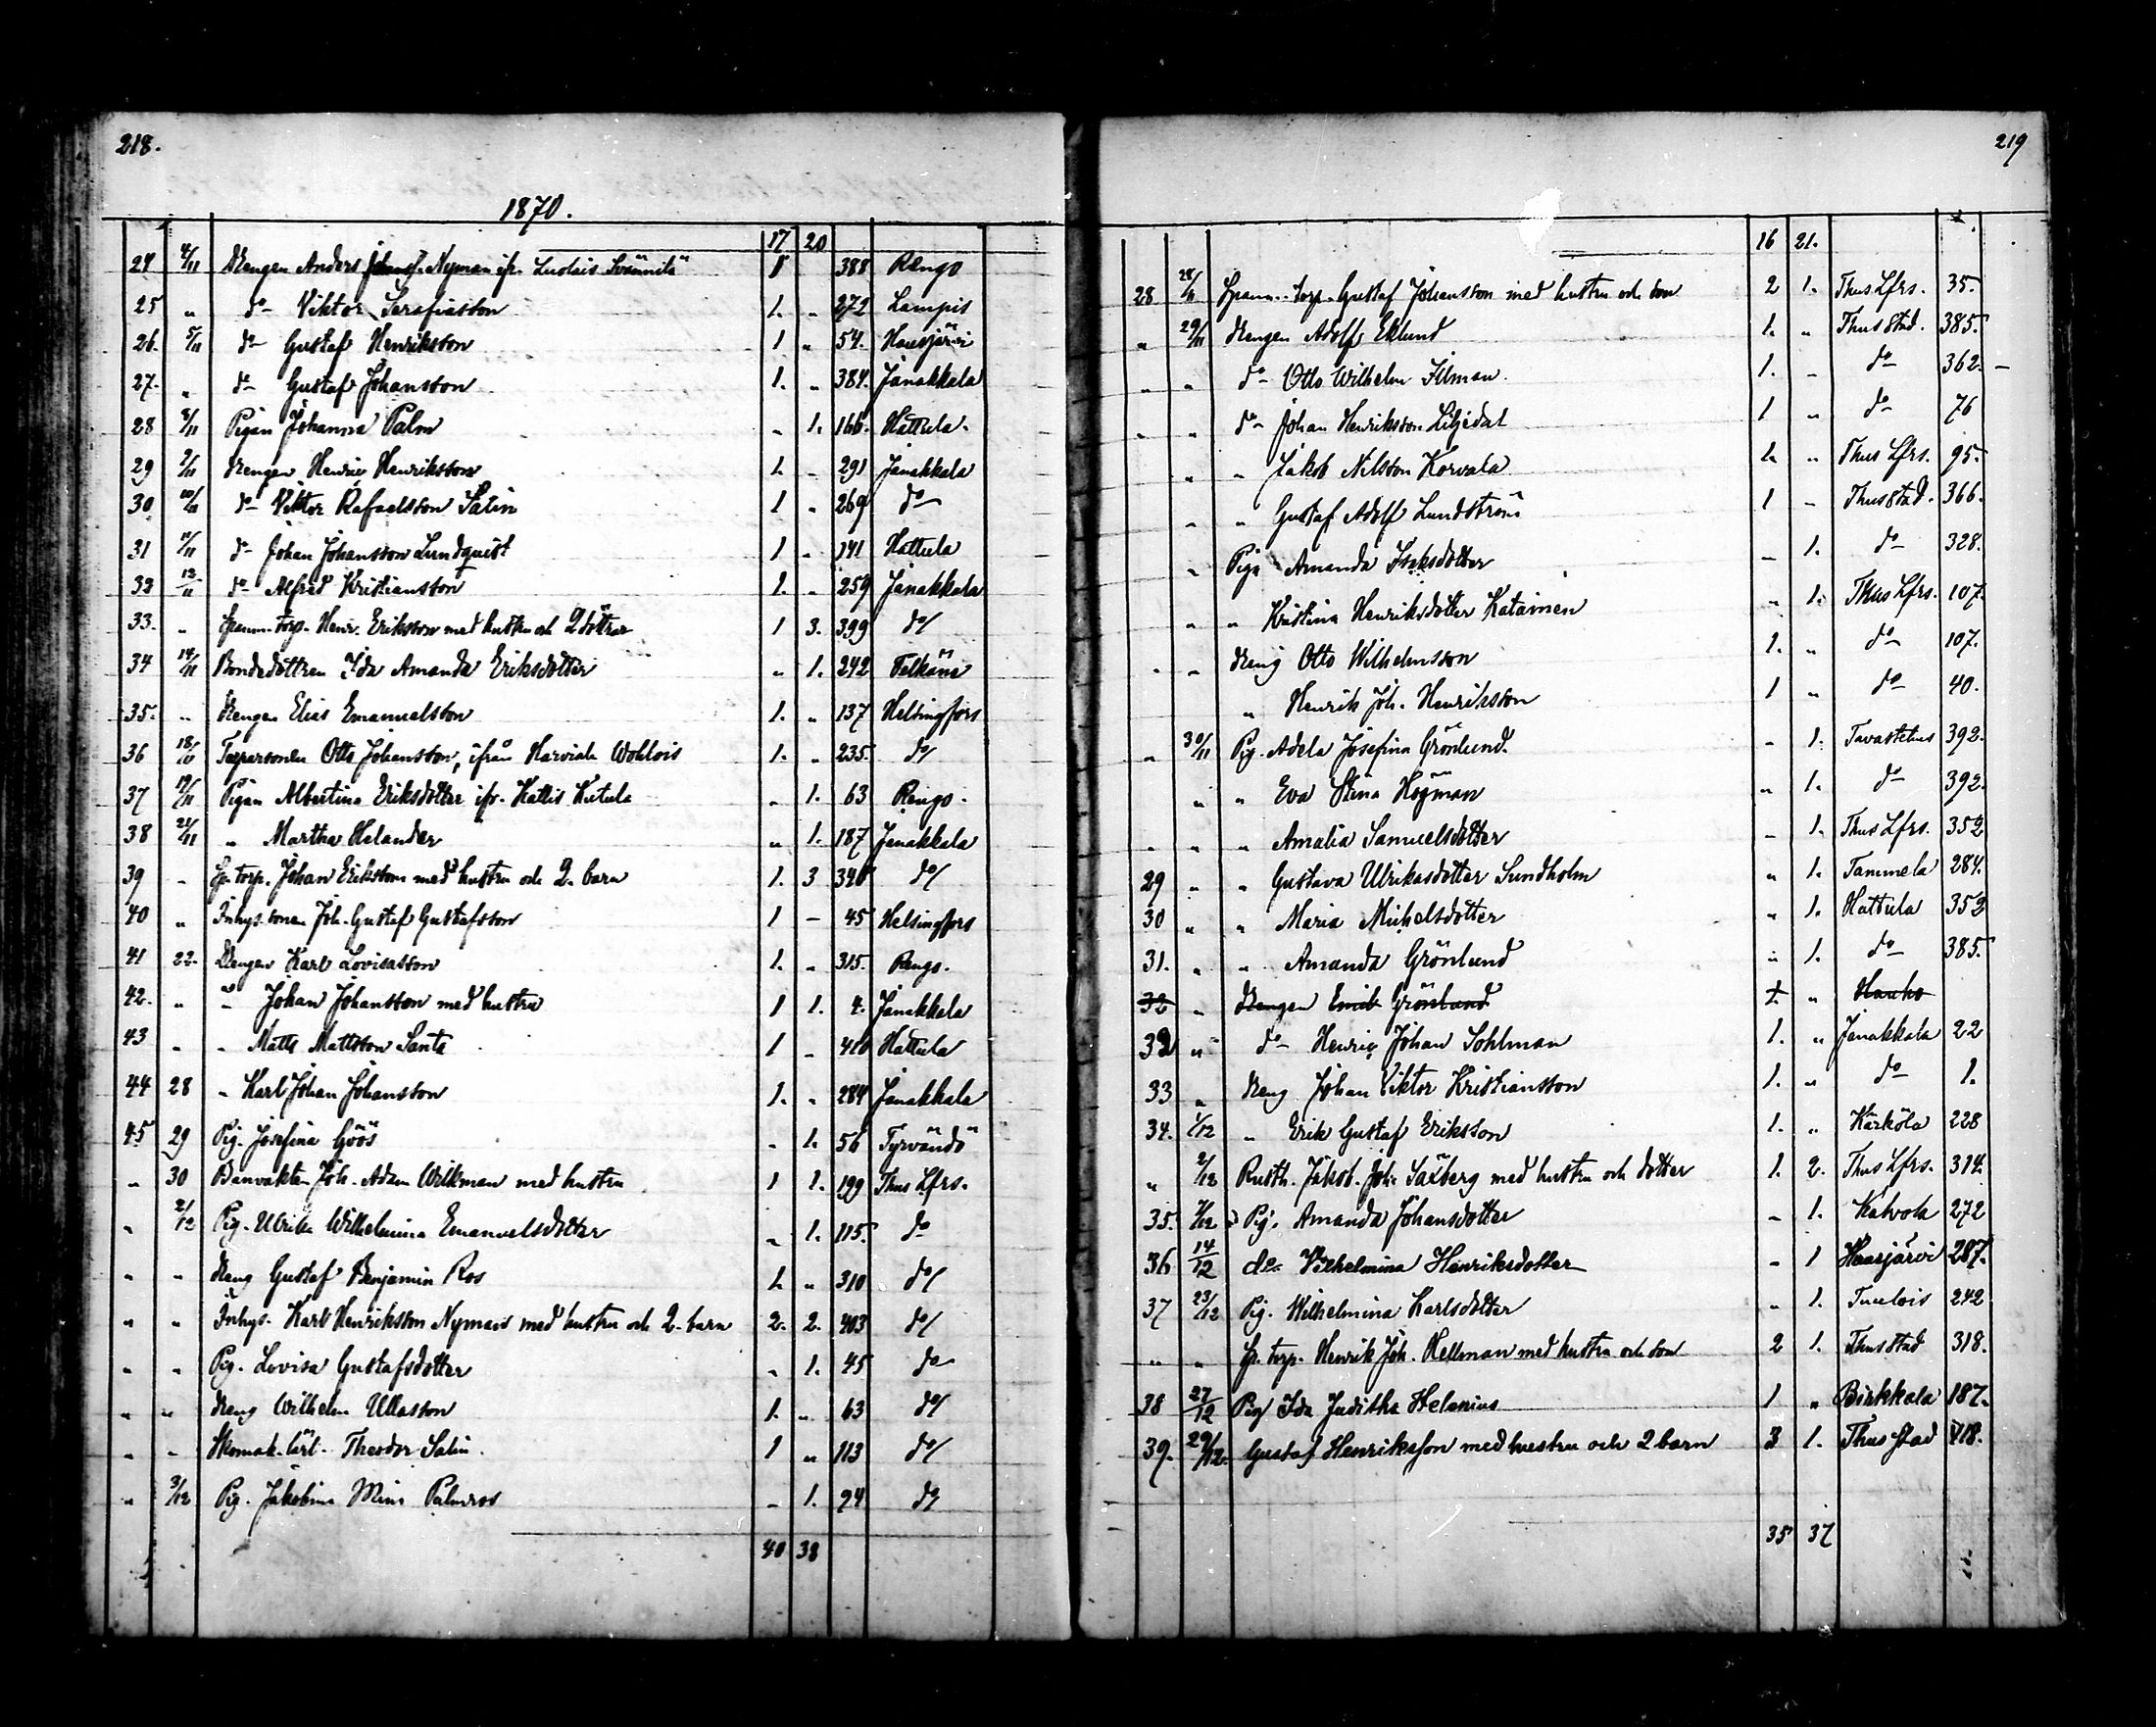 218.
1870.
17 20
24 4/11 Drengen Anders Johansf. Nyman ifr. 388 Rengo
25 " do Viktor Serafiasson 1. " 272 Lampis
26. 5/11 do Gustaf Henriksson 1 " 54. Hausjärvi
27. " do Gustaf Johansson 1. " 384. Janakkala
28 8/11 Pigan Johanna Palm " 1. 166. Hattula.
29 9/11 Drengen Henric Henriksson 1. " 291 Janakkala
30 10/11 do Viktor Rafaelsson Salin 1 " 269 do
31 11/11 do Johan Johansson Lundquist 1 " 141 Hattula
32 12/11 do Alfred Kristiansson 1. " 259 Janakkala
33. " Spanm. torp. Henr. Eriksson med hustru och 2 döttrar 1 3. 399 do
34 14/11 Bondedottren Ida Amanda Eriksdotter " 1. 242 Pelkäne
35. " Drengen Elias Emanuelsson 1. " 137 Helsingfors
36 18/11 Otto Johansson, ifrån Harviala Wohlois 1. " 235. do
37 19/11 Pigan Albertina Eriksdotter ifr. Kattis Kutula " 1. 63 Rengo.
38 21/11 " Martha Helander " 1. 187 Janakkala
39 " Sp. torp. Johan Eriksson med hustru och 2. barn 1. 3 340 do
40 " Inhys. sonen Joh. Gustaf Gustafsson 1 – 45 Helsingfors
41 22. Drengen Karl Lovisasson 1. " 315. Rengo.
42. " " Johan Johansson med hustru 1 1. 4. Janakkala
43 " " Matts Mattsson Santa 1 " 410 Hattula
44 28 " Karl Johan Johansson 1. " 284 Janakkala
45 29 Pig. Josefina Göös " 1. 56 Tyrvändö
" 30 Banvakten Joh. Adam Willman med hustru 1 1. 199 Thus Lfrs.
" 2/12 Pig. Ulrika Wilhelmina Emanuelsdotter " 1. 115. do
" " Dreng Gustaf Benjamin Ros 1. " 310 do
" " Inhys. Karl Henriksson Nyman med hustru och 2. barn 2. 2. 403 do
" " Pig. Lovisa Gustafsdotter " 1. 45 do
" " Dreng Wilhelm Ullasson 1. " 63 do
" " Skomak. lärl. Theodor Salin. 1 " 113 do
" 3/12 Pig. Jakobina Mina Palmros " 1. 94 do
40 38
219
16 21.
28 28/11 Spanm. torp. Gustaf Johansson med hustru och son 2 1. Thus Lfrs. 35.
" 29/11 Drengen Adolf Eklund 1. " Thus stad. 385.
" " do Otto Wilhelm Filman. 1. " do 362. –
" " do Johan Henriksson Liljedal 1 " do 76
" " Jakob Nilsson Korvala 1. " Thus Lfrs. 95.
" " Gustaf Adolf Lundström 1 – Thus stad. 366.
" Piga Amanda Isaksdotter – 1. do 328.
" " Kristina Henriksdotter Katainen " 1. Thus Lfrs. 107.
" " Dreng Otto Wilhelmsson 1. " do 107.
" Henrik Joh. Henriksson 1 " do 40.
" 30/11 Pig. Adela Josefina Grönlund. " 1. Tavastehus 392.
" " Eva Stina Högman " 1. do 392.
" " " Amalia Samuelsdotter " 1. Thus Lfrs. 352
29 " " Gustava Ulrikasdotter Sundholm " 1. Tammela 284.
30 " " Maria Michelsdotter " 1. Hattula 352
31. " " Amanda Grönlund " 1. do 385.
32 " Drengen Emil Grönlund 1. " Hauho
32 " do Henric Johan Sohlman 1. " Janakkala 22
33 " Dreng Johan Viktor Kristiansson 1. " do 1.
34. 1/12 " Erik Gustaf Eriksson 1. " Kärkölä 228
" 2/12 Rusth. Jakob. Joh. Saxberg med hustru och dotter 1. 2. Thus Lfrs. 314.
35. 7/12 Pig. Amanda Johansdotter – 1. Kalvola 272
36 14/12 do Vilhelmina Henriksdotter " 1 Hausjärvi 287.
37 23/12 Pig. Wilhelmina Karlsdotter " 1. Tuulois 242
" " Sp. torp. Henrik Joh. Hellman med hustru och son 2 1. Thus stad 318.
38 27/12 Pig Ida Juditha Helenius 1 " Birkkala 187.
39. 29/12. Gustaf Henriksson med hustru och 2 barn 3 1. Thus stad 418.
35 37